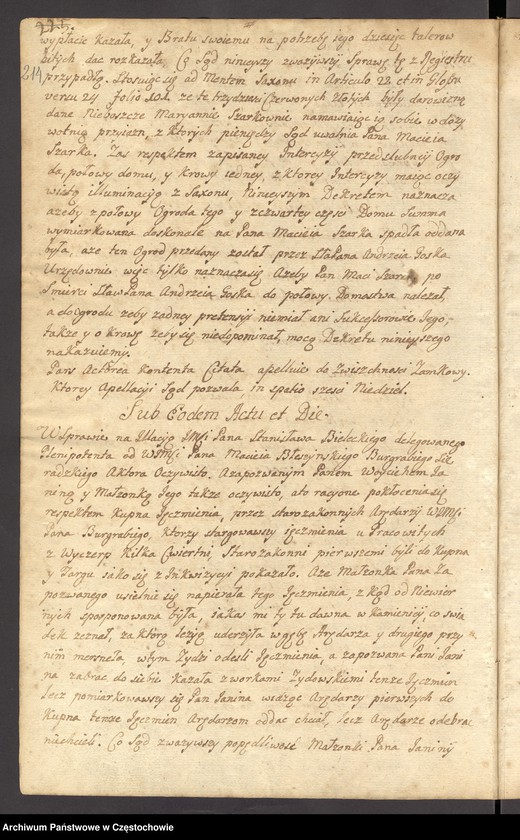 214
wypłacic kazała, y Bratu swoiemu na potrzeby iego dziesięc talerow
bitych dac rozkazała, Co Sąd ninieyszy zważiwszy Sprawę tę z Regestru
przypadłą. Stosuiąc się ad Mentem Saxonu in Articulo 23 et in Glossa
versu 24 folio 101 ze te trzydziesci Czerwonych złotych były darowizną
dane Nieboszce Maryannie Szarkownie namawiaiąc ią sobie w dozy
wotnią przyiazn, z ktorych pieniędzy Sąd uwalnia Pana Macieia
Szarka. Zas respektem zapisaney Intercyzy przedslubney Ogro
da, połowy domu, y krowy iedney, z ktorey Intercyzy maiąc oczy
wistą illuminacyią z Saxonu, Ninieyszym Dekretem naznacza
azeby z połowy Ogroda tego y z czwartey częsci Domu Summa
wymiarkowana doskonale na Pana Macieia Szarka spadła oddana
była, aze ten Ogrod przedany został przez Pana Andrzeia Goska
Urzędownie więc tylko naznacza się Azeby Pan Maci Szarek po
Smierci Sław Pana Andrzeia Goska do połowy Domostwa nalezał,
a do Ogrodu zeby zadney pretensyi niemiał ani Sukcessorowie Iego,
takze y o krowę zeby się niedopominał, mocą Dekretu ninieyszego
nakazuiemy.
Pars Actorea kontenta Citata apelluie do Zwierzchnosci Zamkowy.
Ktorey Apellacyi Sąd pozwala in spatio szesci Niedziel.
Sub Eodem Actu et Die.
W Sprawie na Ulacyią Pana Stanisława Bielickiego delegowanego
Plenipotenta od Pana Macieia Błeszynskiego Burgrabiego Sie
radzkiego Aktora Oczywisto, A zapozwanym Panem Woyciechem Ja
niną y Małzonką Iego takze oczywisto, ato racyone pokłocenia się
respektem kupna Ięczmienia, przez starozakonnych Arędarzy
Pana Burgrabiego, ktorzy stargowawszy ięczmienia u Pracowitych
z Wyczerp Kilka Cwiertni, Starozakonni pierwszemi byli do kupna
y Targu iako się z Inkwizycyi pokazało. Aze Małzonka Pana Za
pozwanego usielnie się napierała tego Ięczmienia, z kąd od Niewier
nych sponponowana była, iakas mi ty tu dawna w kamienicy, co swia
dek zeznał, za ktorą lezyią uderzyła w gębę Arędarza y drugiego przy
nim mersneła, wtym Zydzi odesli Ięczmienia, a zapozwana Pani Jani
na zabrac do siebie kazała z workami Zydowskiemi tenze Ięczmien
lecz pomiarkowawszy się Pan Janina widząc Arędarzy pierwszych do
Kupna tenze Ięczmien Arędarzom oddac chciał, lecz Arędarze odebrac
niechcieli. Co Sąd zwazywszy popędliwosc Małzonki Pana Janiny
Archiwum Państwowe w Częstochowie